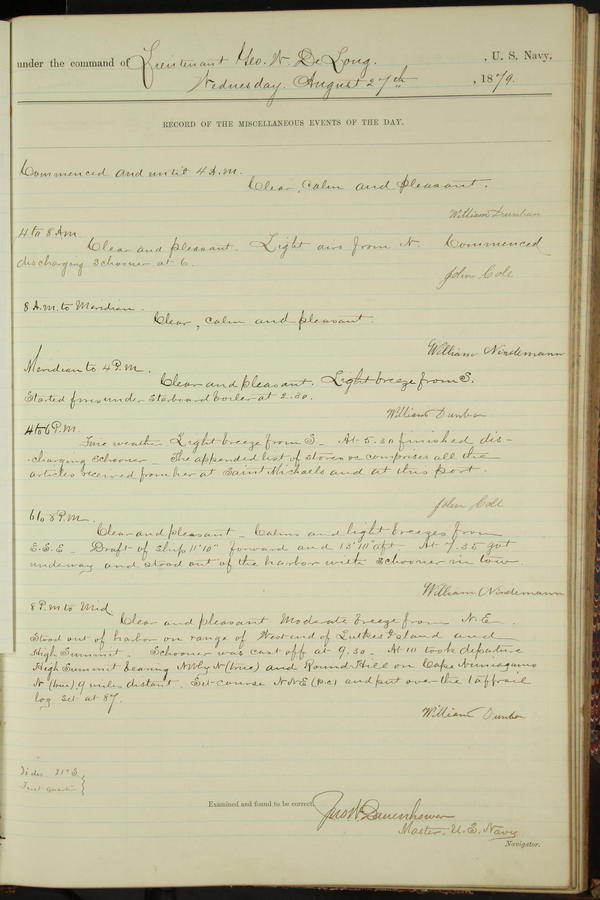 under the command of Lieutenant Geo. W. De Long. , U. S. Navy,
Wednesday. August 27th , 1879.
RECORD OF THE MISCELLANEOUS EVENTS OF THE DAY.
Commenced and until 4 A.M.
Clear, calm and pleasant.
William Dunbar
4 to 8 A.M.
Clear and pleasant. Light airs from N. Commenced
discharging schooner at 6.
John Cole
8 A.M. to Meridian.
Clear, calm and pleasant.
William Nindemann
Meridian to 4 P.M.
Clear and pleasant. Light breeze from S.
Started fires under starboard boiler at 2.30.
William Dunbar
4 to 6 P.M.
Fine weather. Light breeze from S. At 5.30 finished dis-
charging schooner. The appended list of stores &c comprises all the
articles received from her at Saint Michaels and at this port.
John Cole
6 to 8 P.M.
Clear and pleasant. Calms and light breezes from
E.S.E. Draft of ship 11'10" forward and 13'11" aft. At 7.35 got
underway and stood out of the harbor with schooner in tow.
William Nindemann
8 P.M. to Mid
Clear and pleasant Moderate breeze from N.E.
Stood out of harbor on range of West end of Lutkes Island and
High Summit. Schooner was cast off at 9.30. At 10 took departure
High Summit bearing NW by N (true) and Round Hill on Cape
N (true) 9 miles distant. Set course NNE (p.c) and put over the taffrail
log set at 87.
William Dunbar
21° S.
First quarter
Examined and found to be correct,
Jno W. Danenhower
Master, U.S. Navy
Navigator.